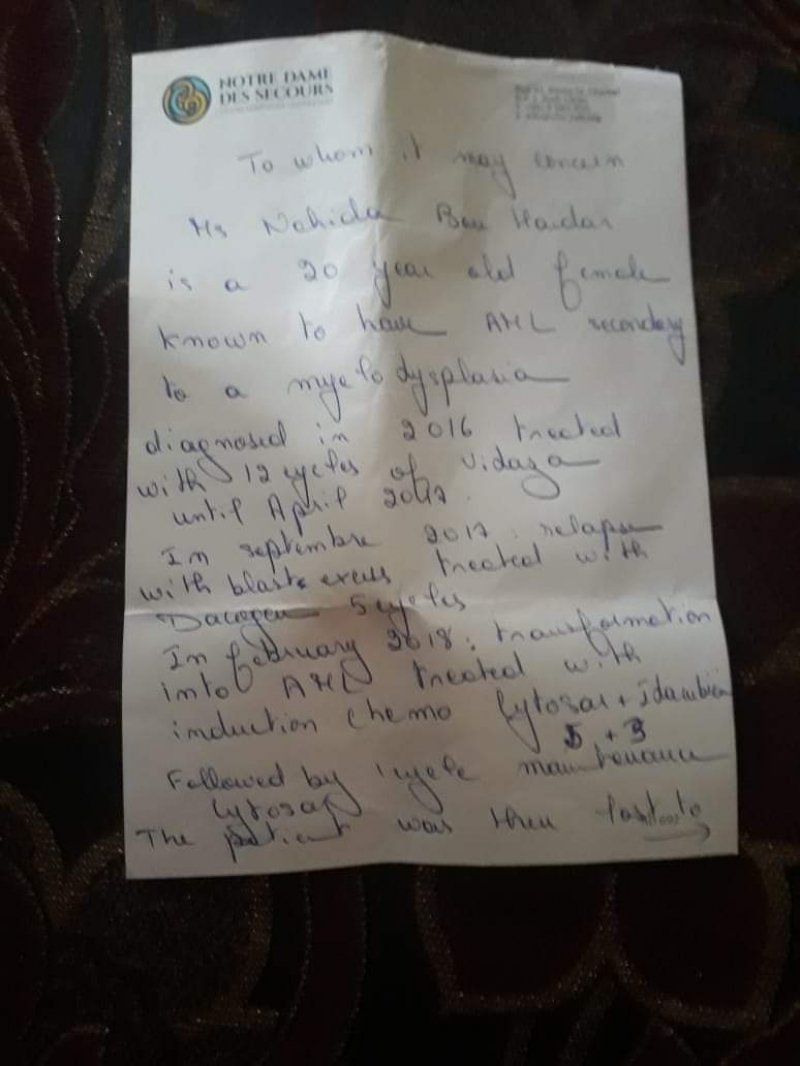 NOTRE DAME
DES SECOURS
To whom it may concern
Ms Nahida Bou Haidar
is a 20 year old female
known to have AML secondary
to a myelodysplasia
diagnosed in 2016 treated
with 12 cycles of Vidaza
until April 2017.
In septembre 2017: relapse
with blasts excess treated with
Dacogen 5 cycles
In february 2018: transformation
into AML treated with
induction chemo Cytosar + idarubicin
5 + 3
Followed by 1 cycle maintenance
Cytosar
The patient was then lost to